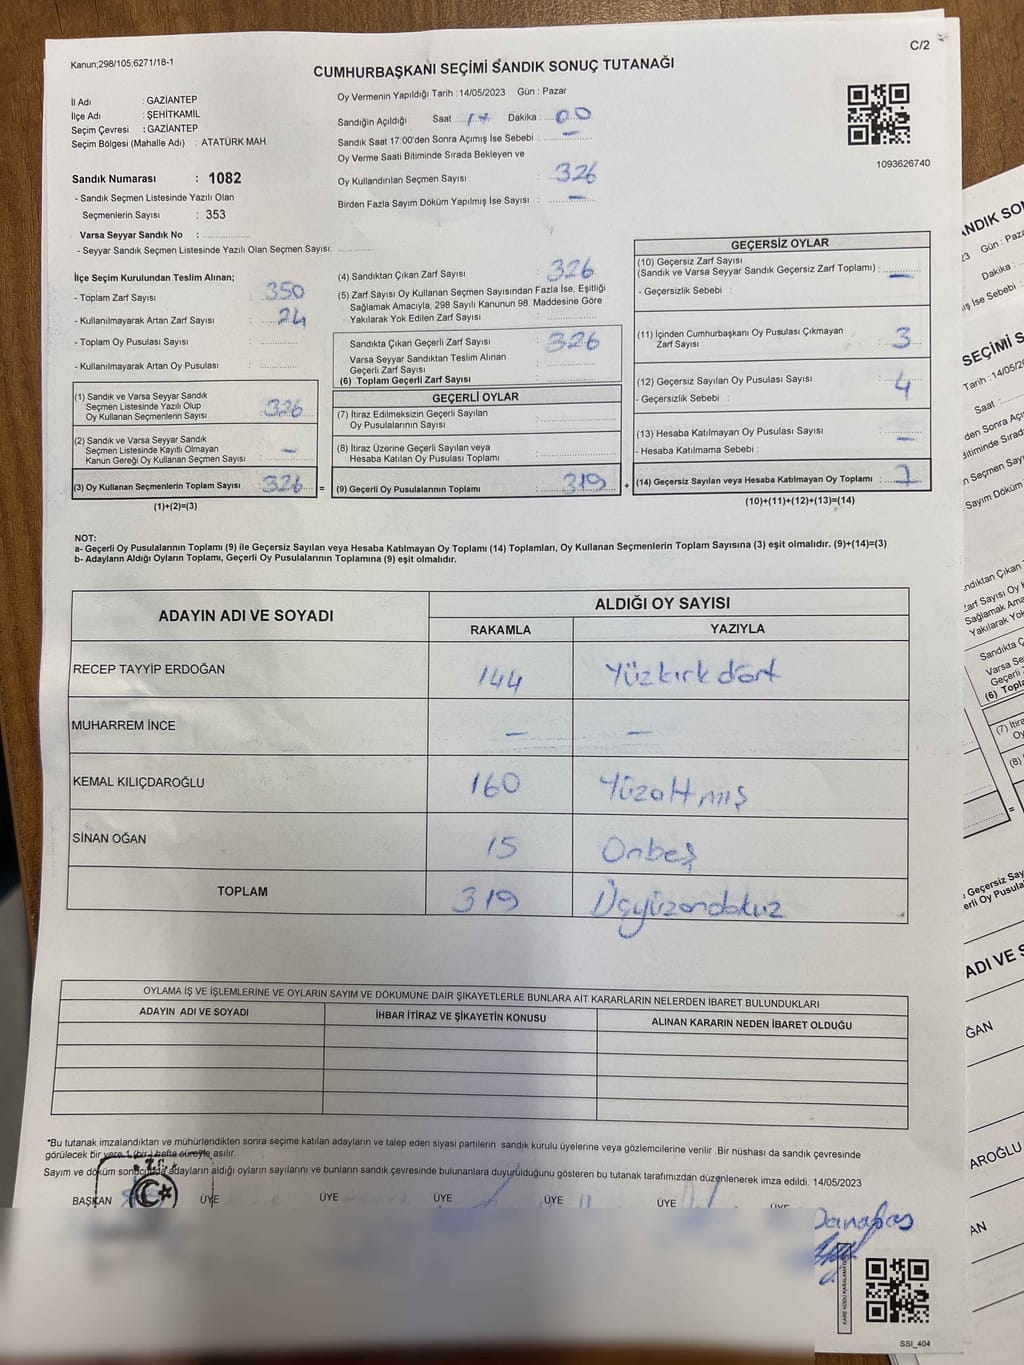 C/2
Kanun;298/105;6271/18-1
CUMHURBAŞKANI SEÇİMİ SANDIK SONUÇ TUTANAĞI
İl Adı : GAZİANTEP
İlçe Adı : ŞEHİTKAMİL
Seçim Çevresi : GAZİANTEP
Seçim Bölgesi (Mahalle Adı) : ATATÜRK MAH.
Sandık Numarası : 1082
- Sandık Seçmen Listesinde Yazılı Olan
Seçmenlerin Sayısı : 353
Varsa Seyyar Sandık No :
- Seyyar Sandık Seçmen Listesinde Yazılı Olan Seçmen Sayısı:
Oy Vermenin Yapıldığı Tarih : 14/05/2023 Gün : Pazar
Sandığın Açıldığı Saat : 17 Dakika : 00
Sandık Saat 17:00'den Sonra Açımış İse Sebebi : –
Oy Verme Saati Bitiminde Sırada Bekleyen ve
Oy Kullandırılan Seçmen Sayısı : 326
Birden Fazla Sayım Döküm Yapılmış İse Sayısı : –
1093626740
İlçe Seçim Kurulundan Teslim Alınan;
- Toplam Zarf Sayısı : 350
- Kullanılmayarak Artan Zarf Sayısı : 24
- Toplam Oy Pusulası Sayısı :
- Kullanılmayarak Artan Oy Pusulası :
(1) Sandık ve Varsa Seyyar Sandık
Seçmen Listesinde Yazılı Olup
Oy Kullanan Seçmenlerin Sayısı : 326
(2) Sandık ve Varsa Seyyar Sandık
Seçmen Listesinde Kayıtlı Olmayan
Kanun Gereği Oy Kullanan Seçmen Sayısı : –
(3) Oy Kullanan Seçmenlerin Toplam Sayısı : 326 =
(1)+(2)=(3)
(4) Sandıktan Çıkan Zarf Sayısı : 326
(5) Zarf Sayısı Oy Kullanan Seçmen Sayısından Fazla İse, Eşitliği
Sağlamak Amacıyla; 298 Sayılı Kanunun 98. Maddesine Göre
Yakılarak Yok Edilen Zarf Sayısı :
Sandıkta Çıkan Geçerli Zarf Sayısı : 326
Varsa Seyyar Sandıktan Teslim Alınan
Geçerli Zarf Sayısı :
(6) Toplam Geçerli Zarf Sayısı :
GEÇERLİ OYLAR
(7) İtiraz Edilmeksizin Geçerli Sayılan
Oy Pusulalarının Sayısı :
(8) İtiraz Üzerine Geçerli Sayılan veya
Hesaba Katılan Oy Pusulası Toplamı :
(9) Geçerli Oy Pusulalarının Toplamı : 319 +
GEÇERSİZ OYLAR
(10) Geçersiz Zarf Sayısı
(Sandık ve Varsa Seyyar Sandık Geçersiz Zarf Toplamı) : –
- Geçersizlik Sebebi :
(11) İçinden Cumhurbaşkanı Oy Pusulası Çıkmayan
Zarf Sayısı : 3
(12) Geçersiz Sayılan Oy Pusulası Sayısı : 4
- Geçersizlik Sebebi :
(13) Hesaba Katılmayan Oy Pusulası Sayısı : –
- Hesaba Katılmama Sebebi :
(14) Geçersiz Sayılan veya Hesaba Katılmayan Oy Toplamı : 7
(10)+(11)+(12)+(13)=(14)
NOT:
a- Geçerli Oy Pusulalarının Toplamı (9) ile Geçersiz Sayılan veya Hesaba Katılmayan Oy Toplamı (14) Toplamları, Oy Kullanan Seçmenlerin Toplam Sayısına (3) eşit olmalıdır. (9)+(14)=(3)
b- Adayların Aldığı Oyların Toplamı, Geçerli Oy Pusulalarının Toplamına (9) eşit olmalıdır.
ADAYIN ADI VE SOYADI ALDIĞI OY SAYISI
RAKAMLA YAZIYLA
RECEP TAYYİP ERDOĞAN 144 Yüzkırk dört
MUHARREM İNCE – –
KEMAL KILIÇDAROĞLU 160 Yüzaltmış
SİNAN OĞAN 15 Onbeş
TOPLAM 319 Üçyüzondokuz
OYLAMA İŞ VE İŞLEMLERİNE VE OYLARIN SAYIM VE DÖKÜMÜNE DAİR ŞİKAYETLERLE BUNLARA AİT KARARLARIN NELERDEN İBARET BULUNDUKLARI
ADAYIN ADI VE SOYADI İHBAR İTİRAZ VE ŞİKAYETİN KONUSU ALINAN KARARIN NEDEN İBARET OLDUĞU
*Bu tutanak imzalandıktan ve mühürlendikten sonra seçime katılan adayların ve talep eden siyasi partilerin sandık kurulu üyelerine veya gözlemcilerine verilir. Bir nüshası da sandık çevresinde
görülecek bir yere 1 (bir) hafta süreyle asılır.
Sayım ve döküm sonucunda adayların aldığı oyların sayılarını ve bunların sandık çevresinde bulunanlara duyurulduğunu gösteren bu tutanak tarafımızdan düzenlenerek imza edildi. 14/05/2023
BAŞKAN ÜYE ÜYE ÜYE ÜYE ÜYE ÜYE
SSI_404